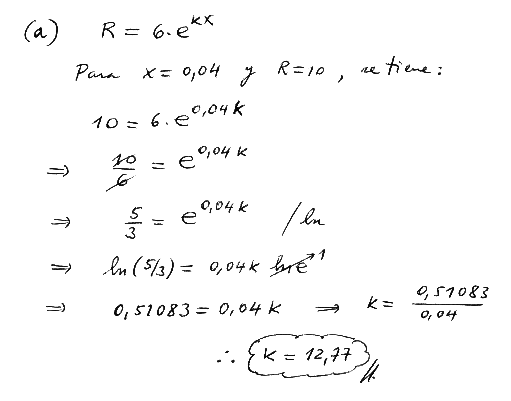 (a) R = 6·e^{kx}
Para x = 0,04 y R=10, se tiene:
10 = 6·e^{0,04k}
⇒ 10/6 = e^{0,04k}
⇒ 5/3 = e^{0,04k} /ln
⇒ ln(5/3) = 0,04k ln e^1
⇒ 0,51083 = 0,04k ⇒ k = 0,51083/0,04
∴ k = 12,77 //.